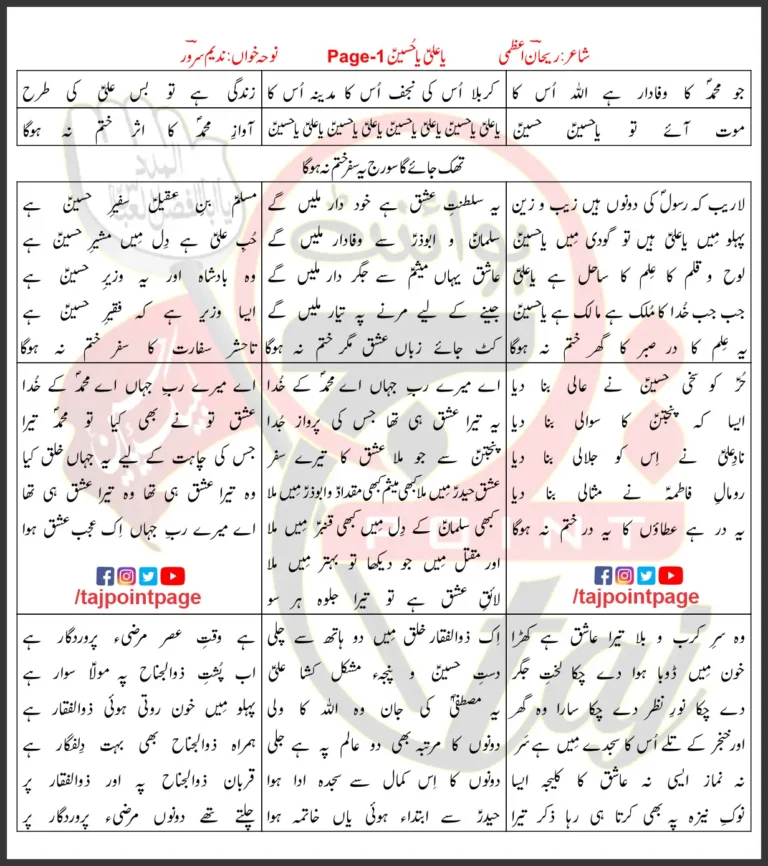 شاعر: ریحان اعظمی
یا علیؑ یا حُسینؑ Page-1
نوحہ خواں: ندیم سرور
جو محمدؐ کا وفادار ہے اللہ اُس کا
کربلا اُس کی نجف اُس کا مدینہ اُس کا
زندگی ہے تو بس علیؑ کی طرح
موت آئے تو یاحسینؑ حسینؑ
یاعلیؑ یاحسینؑ یاعلیؑ یاحسینؑ یاعلیؑ یاحسینؑ یاعلیؑ یاحسینؑ
آوازِ محمدؐ کا اثر ختم نہ ہوگا
تھک جائے گا سورج یہ سفر ختم نہ ہوگا
لاریب کہ رسولؐ کی دونوں ہیں زیب و زین
پہلو میں یاعلیؑ ہیں تو گودی مِیں یاحسینؑ
لوح و قلم کا عِلم کا ساحل ہے یاعلیؑ
جب جب خُدا کا مُلک ہے مالک ہے یاحسینؑ
یہ عِلم کا در صبر کا گھر ختم نہ ہوگا
یہ سلطنتِ عشق ہے خود دار ملیں گے
سلمانؑ و ابوذرؑ سے وفادار ملیں گے
عاشق یہاں میثمؑ سے جگر دار ملیں گے
جینے کے لیے مرنے پہ تیار ملیں گے
کٹ جائے زباں عشق مگر ختم نہ ہوگا
مسلمؑ بنِ عقیلؑ سفیرِ حسینؑ ہے
حُبِ علیؑ ہے دِل مِیں مشیرِ حسینؑ ہے
وہ بادشاہ اور یہ وزیرِ حسینؑ ہے
ایسا وزیر ہے کہ فقیرِ حسینؑ ہے
تاحشر سفارت کا سفر ختم نہ ہوگا
حُرؑ کو سخی حسینؑ نے عالی بنا دیا
ایسا کہ پنجتنؑ کا سوالی بنا دیا
نادِعلیؑ نے اِس کو جلالی بنا دیا
رومالِ فاطمہؑ نے مثالی بنا دیا
یہ در ہے عطاؤں کا یہ در ختم نہ ہوگا
/tajpointpage
اے میرے رب جہاں اے محمدؐ کے خُدا
یہ تیرا عشق ہی تھا جس کی پرواز جُدا
پنجتنؑ سے جو ملا عشق کا تیرے سفر
عشقِ حیدرؑ میں ملا کبھی میثم کبھی مقداد و ابوذر مِیں ملا
کبھی سلمانؑ کے دِل مِیں کبھی قنبرؑ مِیں ملا
اور مقتل مِیں جو دیکھا تو بہتر مِیں ملا
لائقِ عشق ہے تو تیرا جلوہ ہر سو
اے میرے ربِ جہاں اے محمدؐ کے خُدا
عشق تو نے بھی کیا تو محمدؐ تیرا
جس کی چاہت کے لیے یہ جہاں خلق کیا
وہ تیرا عشق ہی تھا وہ تیرا عشق ہی تھا
اے میرے رب جہاں اِک عجب عشق ہوا
/tajpointpage
وہ سرِ کرب و بلا تیرا عاشق ہے کھڑا
خون مِیں ڈوبا ہوا دے چکا لختِ جگر
دے چکا نورِ نظر دے چکا سارا وہ گھر
اور خنجر کے تلے اُس کا سجدے مِیں ہے سَر
نہ نماز ایسی نہ عاشق کا کلیجہ ایسا
نوکِ نیزہ پہ بھی کرتا ہی رہا ذکر تیرا
اِک ذوالفقار خلق مِیں دو ہاتھ سے چلی
دستِ حسینؑ و پنجہء مشکل کشا علیؑ
یہ مصطفیٰؐ کی جان وہ اللہ کا ولی
دونوں کا مرتبہ بھی دو عالم پہ ہے جلی
دونوں کا اِس کمال سے سجدہ ادا ہوا
حیدرؑ سے ابتداء ہوئی یاں خاتمہ ہوا
ہے وقتِ عصر مرضیء پروردگار ہے
اب پُشتِ ذوالجناح پہ مولاؑ سوار ہے
پہلو مِیں خون روتی ہوئی ذوالفقار ہے
ہمراہ ذوالجناح بھی بہت دِلفگار ہے
قربان ذوالجناح پہ اور ذوالفقار پر
چلتے تھے دونوں مرضیء پروردگار پر